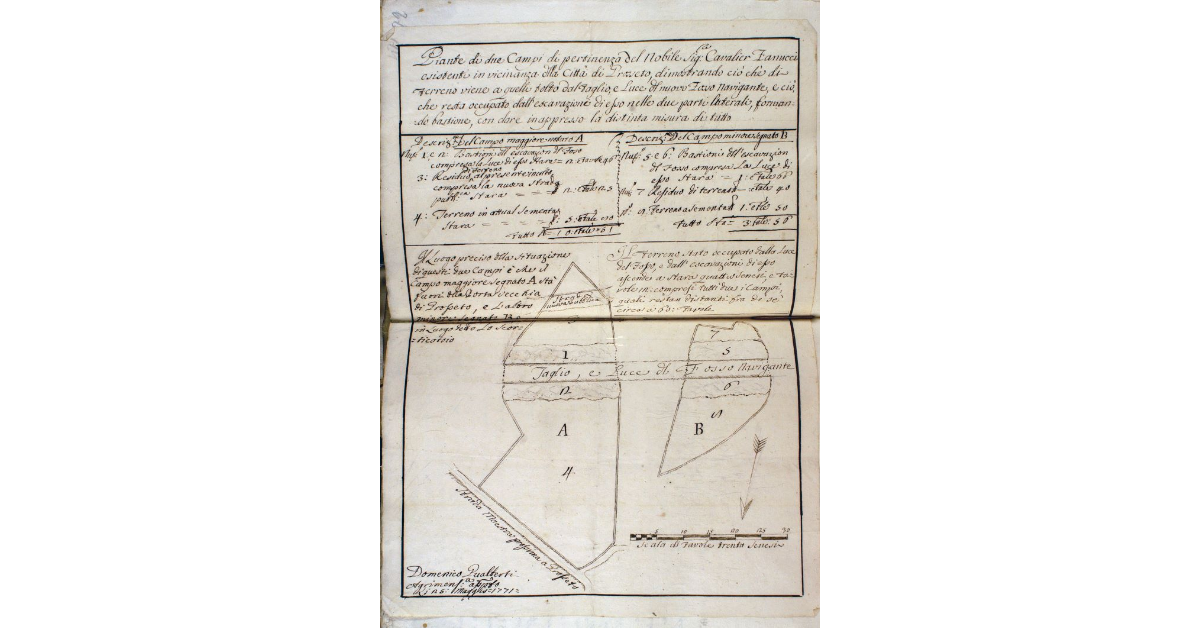 Piante di due Campi di pertinenza del Nobile Sig.re Cavalier Fanucci
esistenti in vicinanza alla Città di Groseto, dimostrando ciò che di
Terreno viene a quelli tolto dal Taglio, e Luce del nuovo Foso Navigante, e ciò,
che resta occupato dall'escavazione di esso nelle due parti laterali, forman-
do bastione, con dare inappresso la distinta misura di tutto
Descriz.e Del Campo maggiore notato A
1. e 2: Bastioni dell'escavazion del Foso
compresa la Luce di esso Stara =
3: Residuo di terreno al presente incolto
compresa la nuova Strada
pubb.ca Stara =
4: Terreno in attual Sementa
Stara =
tutto
Descriz.e Del Campo minore segnato B
5 e 6: Bastioni dell'escavazion
del Fosso compresa La Luce di
esso Stara =
7 Residuo di terreno
9 Terreno a Sementa
tutto
Il Luogo preciso della Situazione
di questi due Campi è che il
Campo maggiore Segnato A Stà
fuori della Porta Vecchia
di Grosseto, e L'altro
minore Segnato B è
in Luogo detto Lo Scor-
ticatoio
Il Terreno Stato occupato dalla Luce
del Fosso, e dall'escavazioni di esso
ascende a Stara quattro Senesi, e ta-
vole compresi tutti due i Campi,
quali restan distanti fra di se
circa a 60: Tavole
nuova pubblica
3
1
Taglio, e Luce del Fosso Navigante
2
A
4
7
5
6
9
B
Strada Maestra
a Grosseto
5 10 15 20 25 30
Scala di Tavole trenta Senesi
Domenico Gualterti
Agrimens.
1771